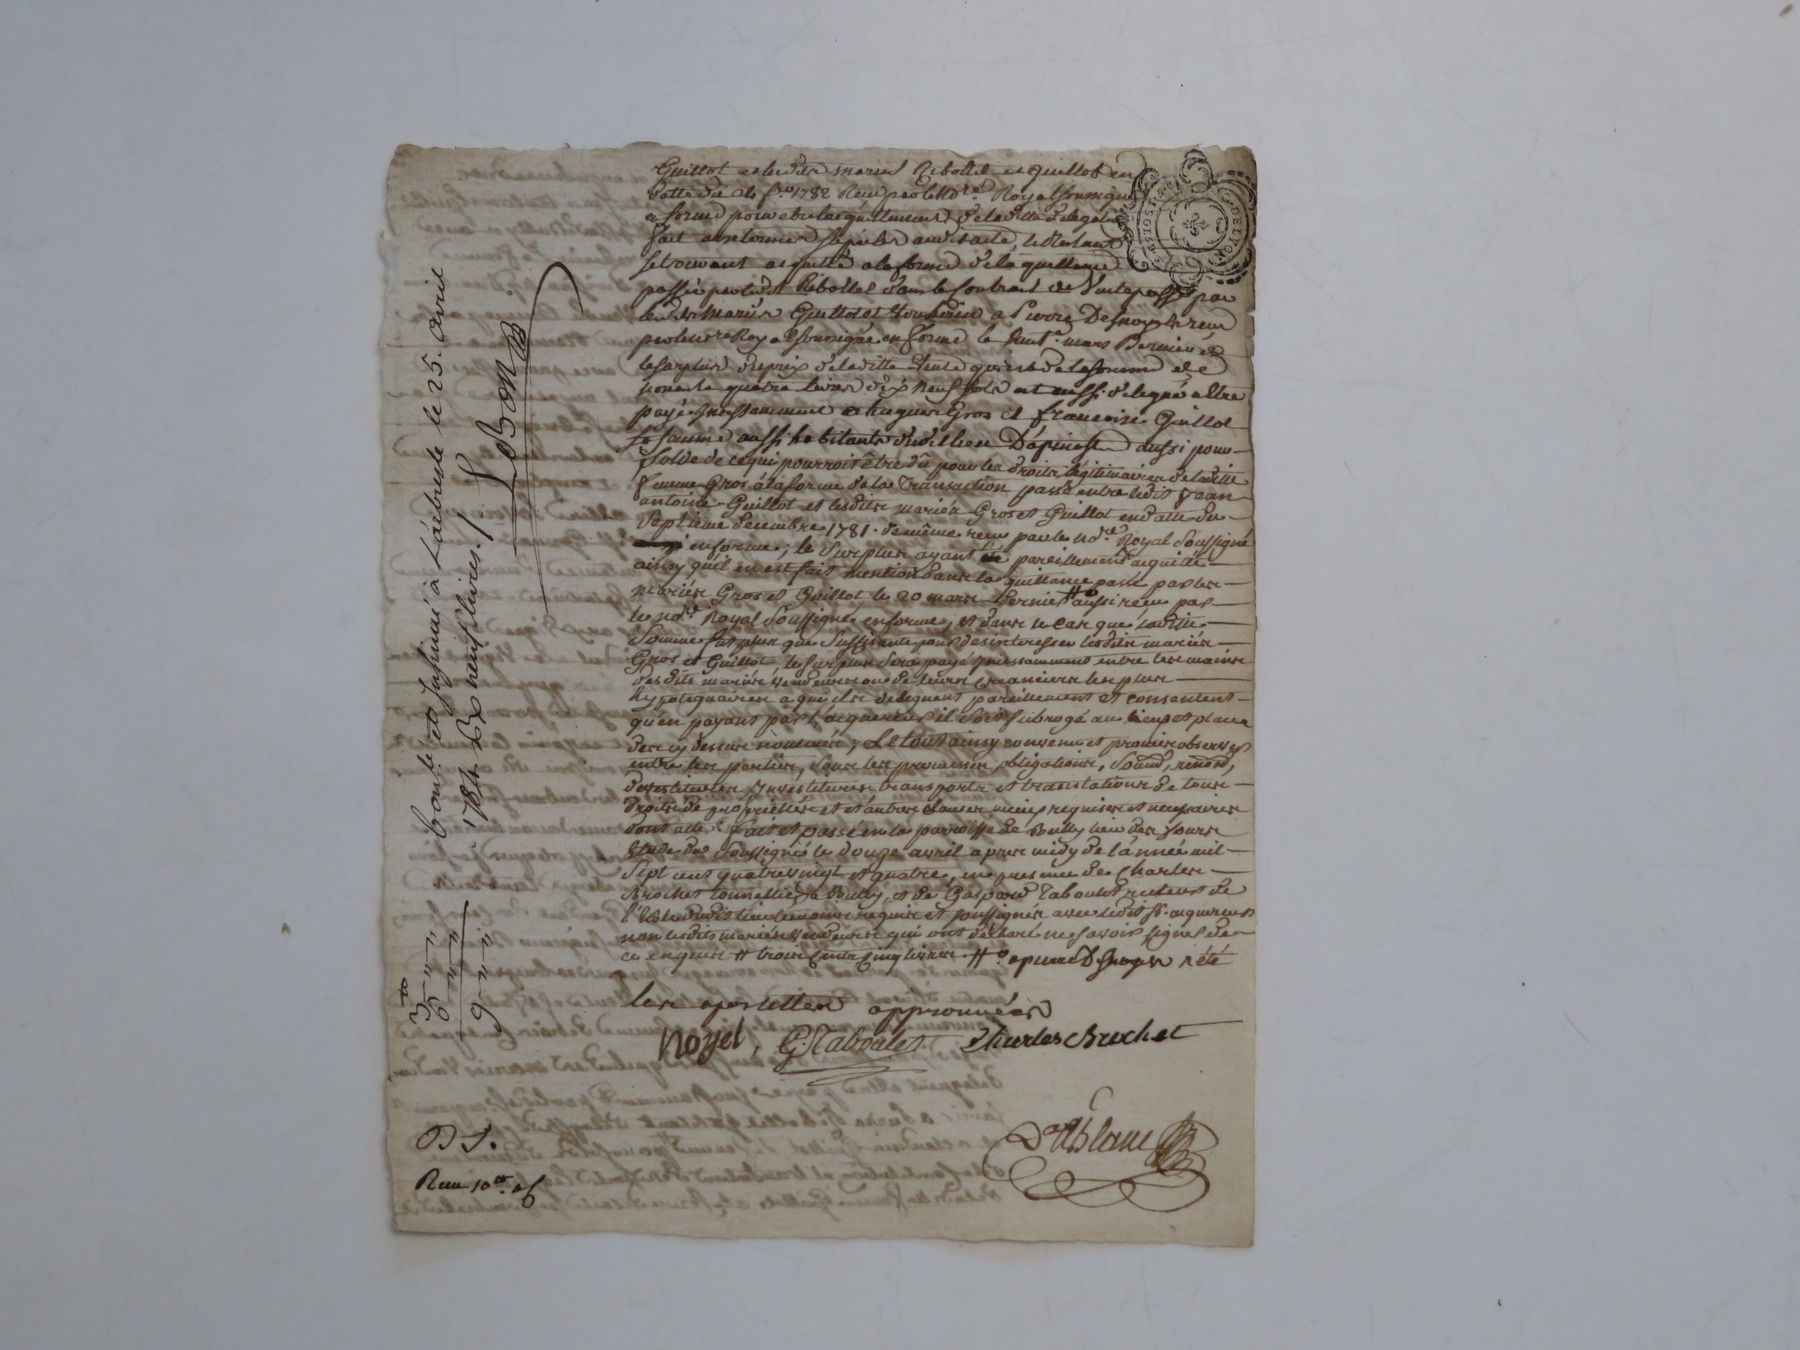 Guillot et lesdits mariés Rebollet et Guillot en
datte du 1782 Reçu par le Nre Royal Soussigné
en forme pour être l'acquittement de la ditte delegation
fait au acte, le Restant
se trouvant acquitté a la forme de la quittance
passée par ledit Rebollet dans le Contrat de Vente passé par
lesdits mariés Guillot et a Pierre Desnoyer reçu
par le Nre Royal soussigné en forme le mars Dernier et
le surplus du prix de la ditte Vente qui est de la somme de
nonante quatre livres dix neuf sols est aussi delegué a être
payé incessamment a hugues Gros et françoise Guillot
sa femme aussi habitants dudit lieu D'apinost aussi pour
solde de ce qui pourroit être dû pour les droits légitimaires de laditte
femme Gros a la forme de la Transaction passé entre ledit Jean
antoine Guillot et lesdits mariés Gros et Guillot en datte du
Septieme decembre 1781. de même reçu par le nore Royal Soussigné
en forme; le Surplus ayant été pareillement acquitté
ainsy qu'il en est fait mention dans la quittance passé par les
mariés Gros et Guillot le 20 mars Dernier # aussi reçu par
le nore Royal Soussigné en forme, et dans le cas que laditte
Somme fut plus que Suffisante pour desinteresser lesdits mariés
Gros et Guillot, le Surplus Sera payé incessamment entre les mains
desdits mariés vendeurs ou de leurs creanciers les plus
hypotequaires a qui ils deleguent pareillement et consentent
qu'en payant par l'acquereur il Soit Subrogé au lieu et place
des cy dessus nommés; Le tout ainsy convenu et promis observer
entre les parties, Sous les promesses, obligations, Soumis, renonc,
devestitures, Investitures transports et translations de tous
droits de proprietés et d'autres clauses même requises et necessaires
dont acte: fait et passé en la parroisse de Bully lieu des Jours
Etude du Soussigné le douze avril apres midy de l'année mil
Sept cens quatre vingt et quatre, en presence de Charles
Brochet tonnellier a Bully, et de Gaspard Taboulet recteur de
l'Ecole dudit lieu temoins requis et soussignés avec ledit Sr. acquereur
non lesdits mariés vendeurs qui ont declaré ne savoir signer de
ce enquis # trois Cents Cinq livres # a pierre Desnoyer
les apostilles approuvées
Noyel, G. Taboulet Charles Brochet
Dublanc
Controllé et Insinué à L'arbresle le 25. avril
1784. Dx neuf livres./. LeBon
3tt
6
9
DS.
Reçu 10tt